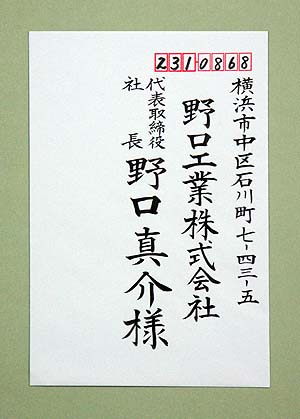 2310868
横浜市中区石川町七-四三-五
野口工業株式会社
代表取締役
社長
野口真介様